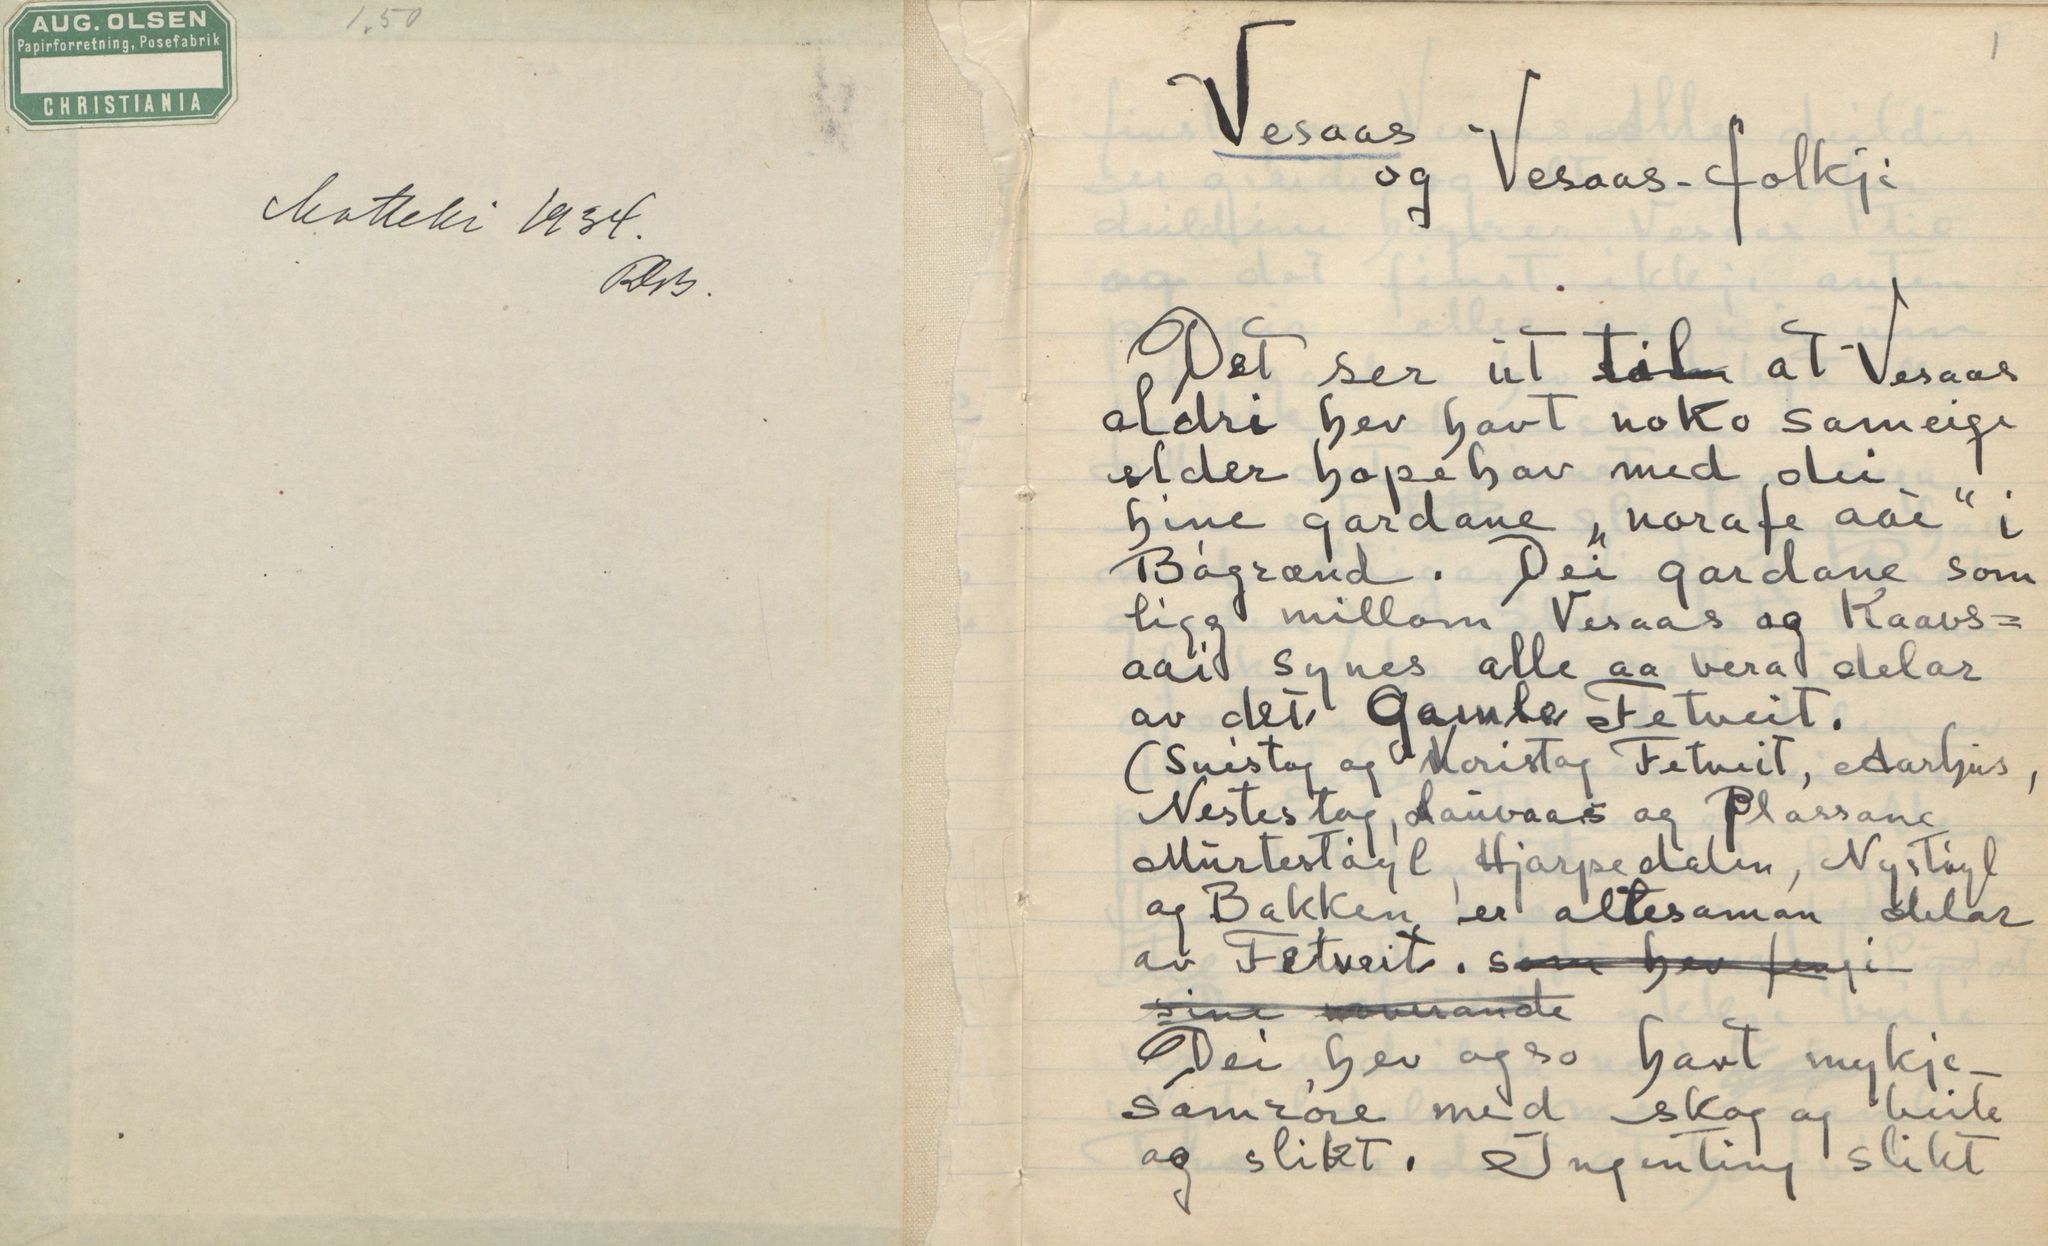 AUG. OLSEN
Papirforretning, Posefabrik
CHRISTIANIA
1.50
Motteki 1934.
RBB.
1
Vesaas
og Vesaas-folkji
Det ser út til at Vesaas
aldri hev havt noko sameige
elder hopehav med dei
hine gardane „norafe aaè“ i
Bágrænd. Dei gardane som
ligg millom Vesaas og Kaavs=
aai synes alle aa vera delar
av det gamle Fetveit.
(Suistog og Noristog Fetveit, Aarhus,
Nestestog, Lauvaas og Plassane
Murtestøyl, Hjarpedalen, Nystøyl
og Bakken er altesaman delar
av Fetveit. som hev fengi
sine noverande
Dei hev ogso havt mykje
samrøre med skog og beite
og slikt. Ingenting slikt